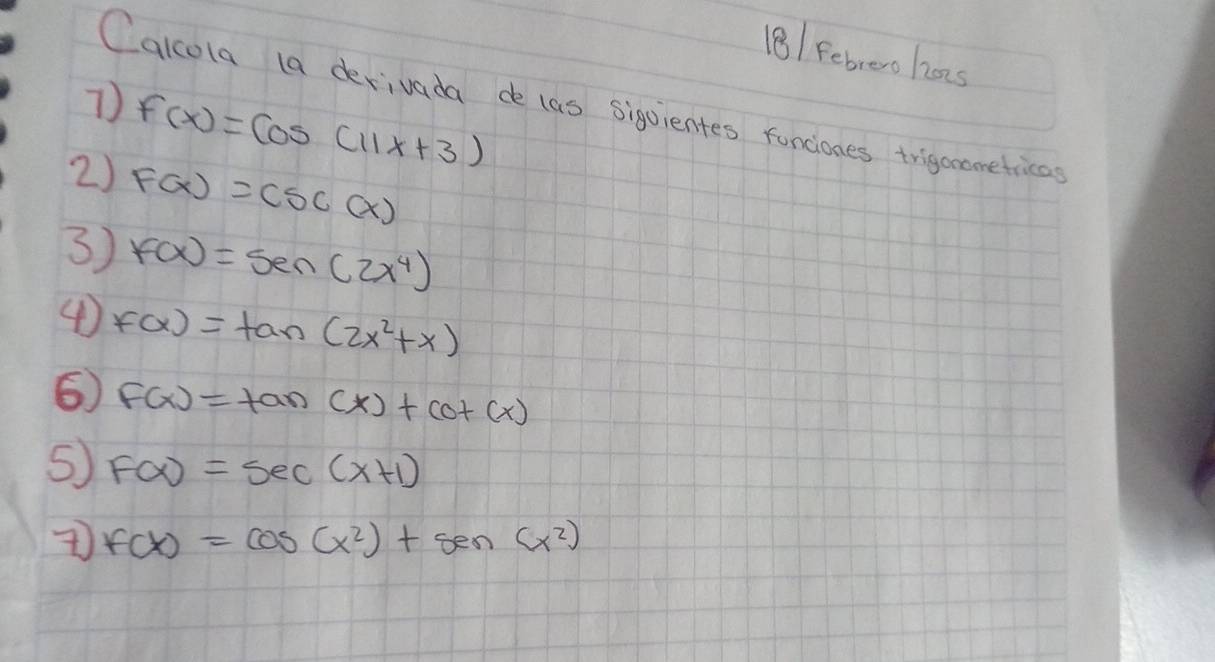 18/Febrero/2025
Calcula la derivada de las siguientes funciones trigonometricas
1) f(x) = Cos (11x+3)
2) F(x) = CSC (x)
3) f(x) = Sen (2x⁴)
4) f(x) = tan (2x²+x)
6) F(x) = tan (x) + cot (x)
5) F(x) = Sec (x+1)
7) f(x) = cos (x²) + sen (x²)